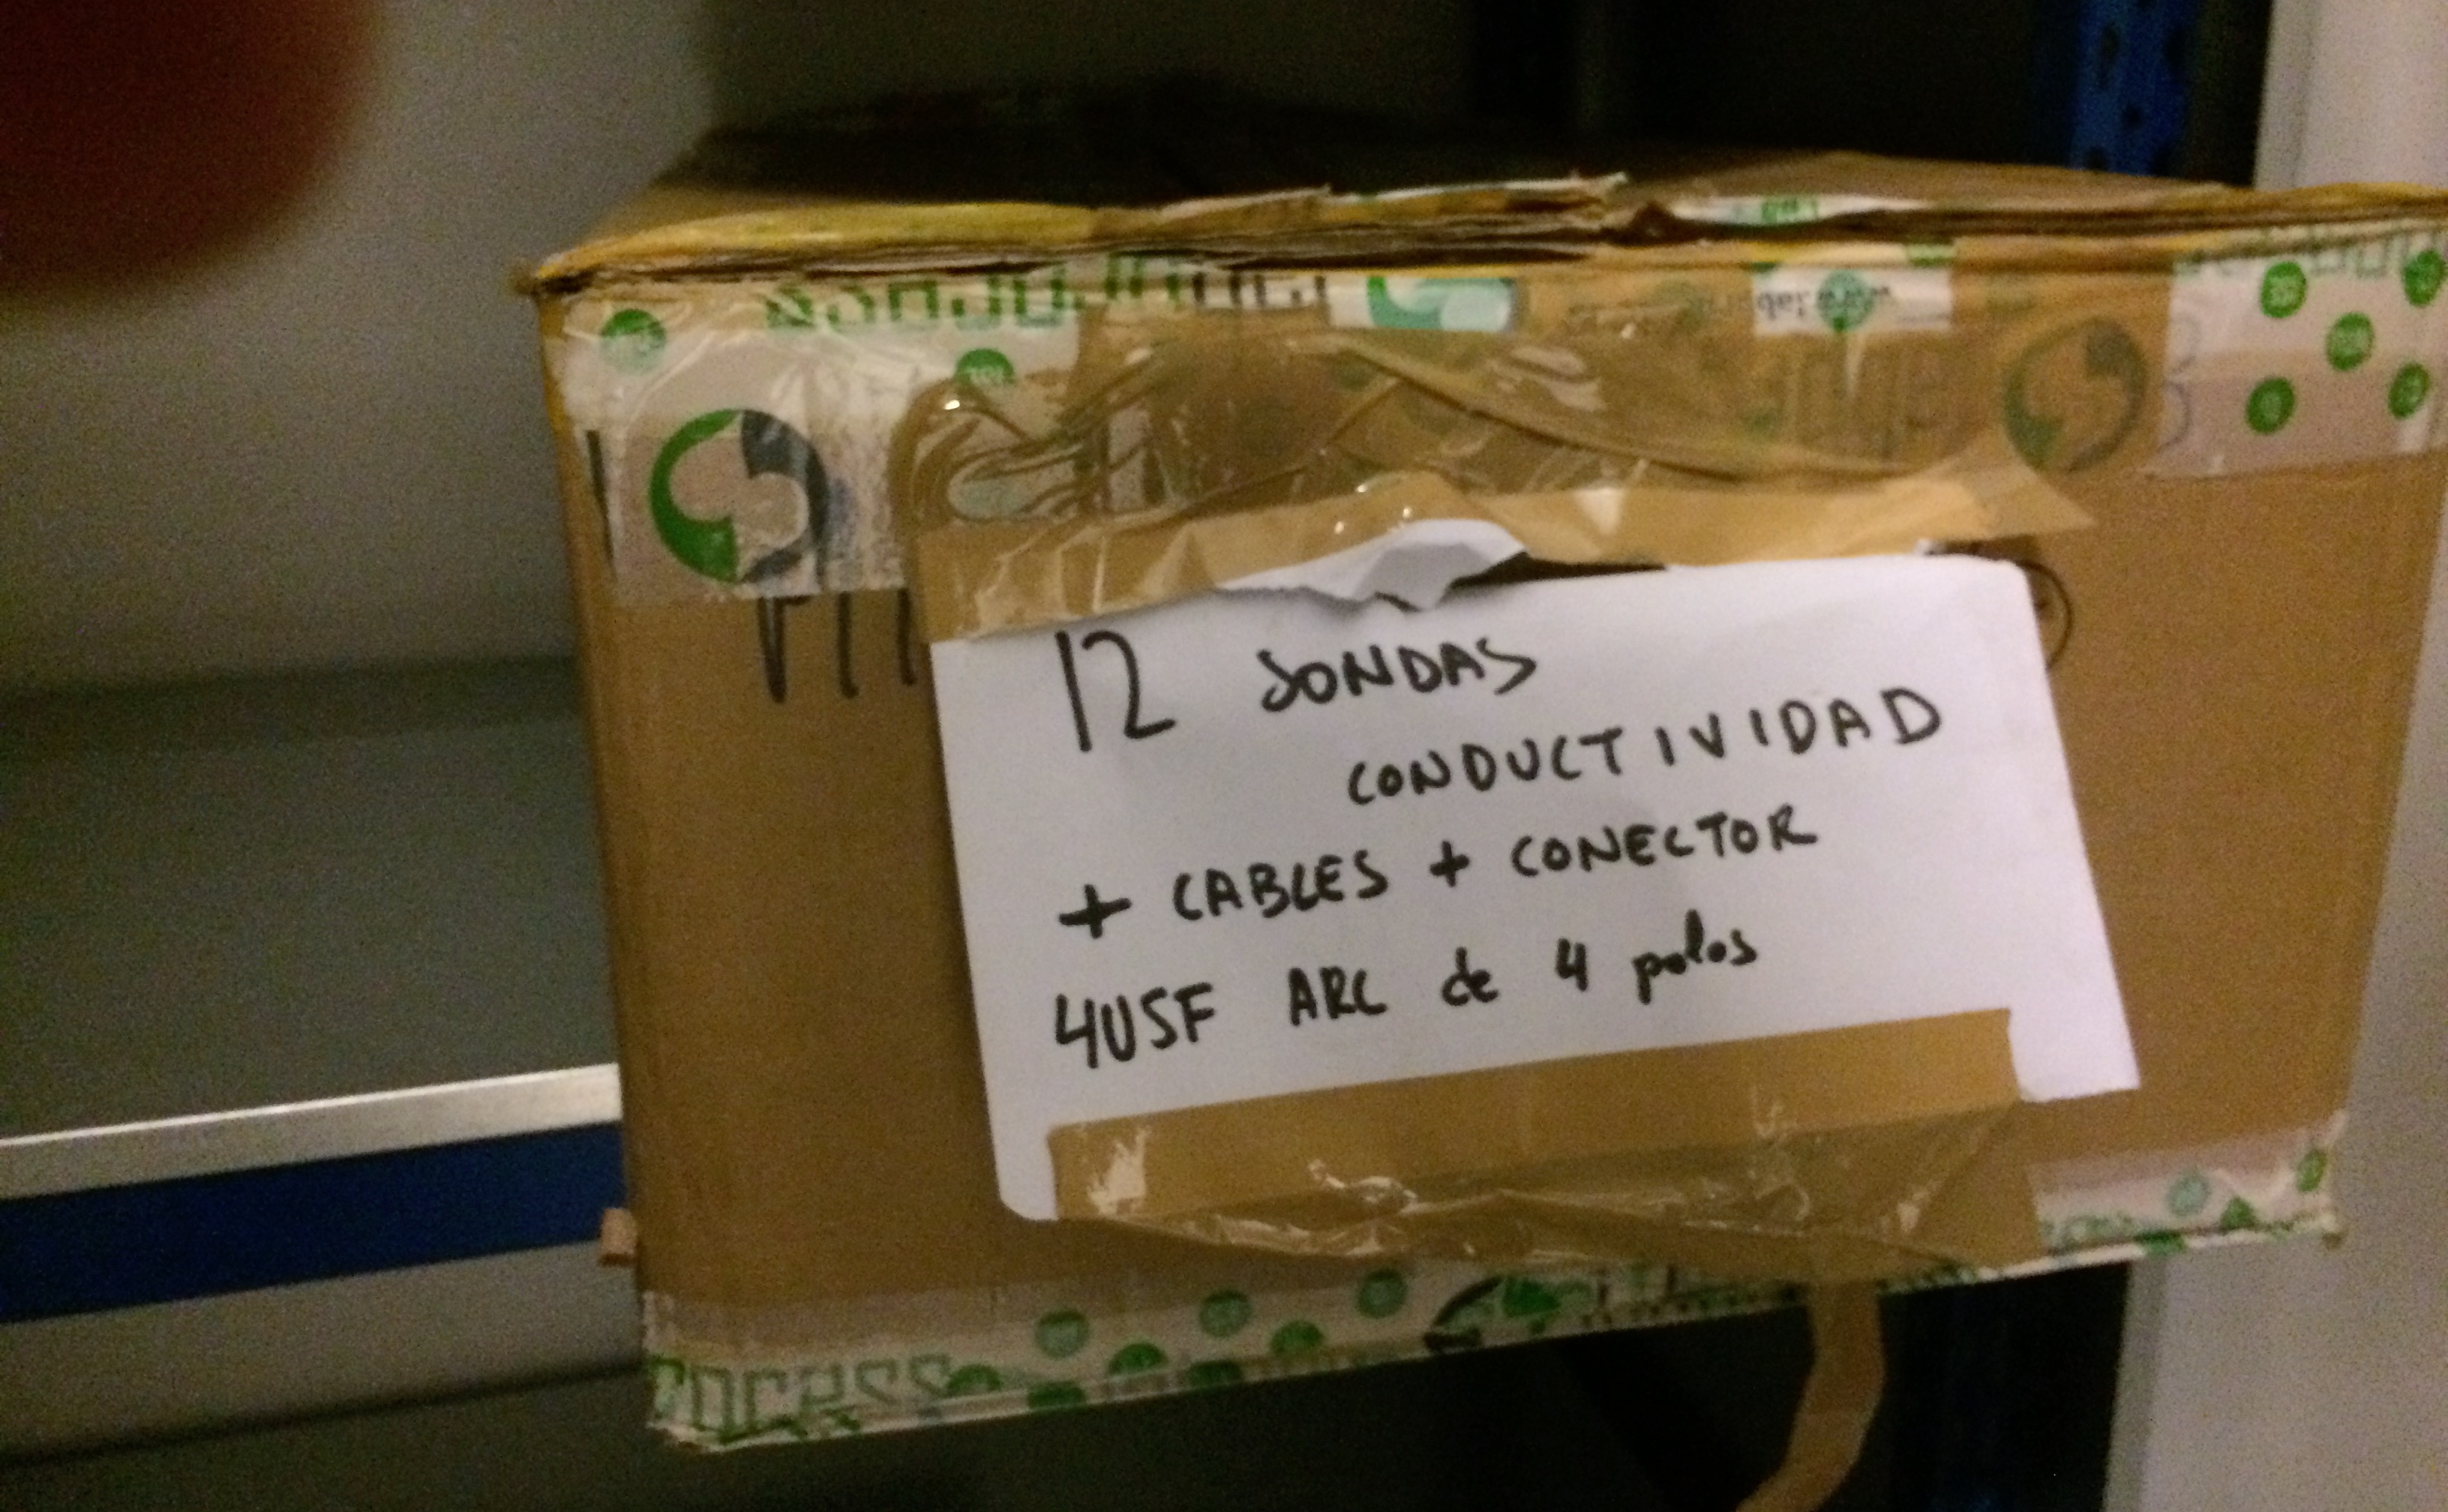 12 SONDAS
CONDUCTIVIDAD
+ CABLES + CONECTOR
4USF ARC de 4 polos